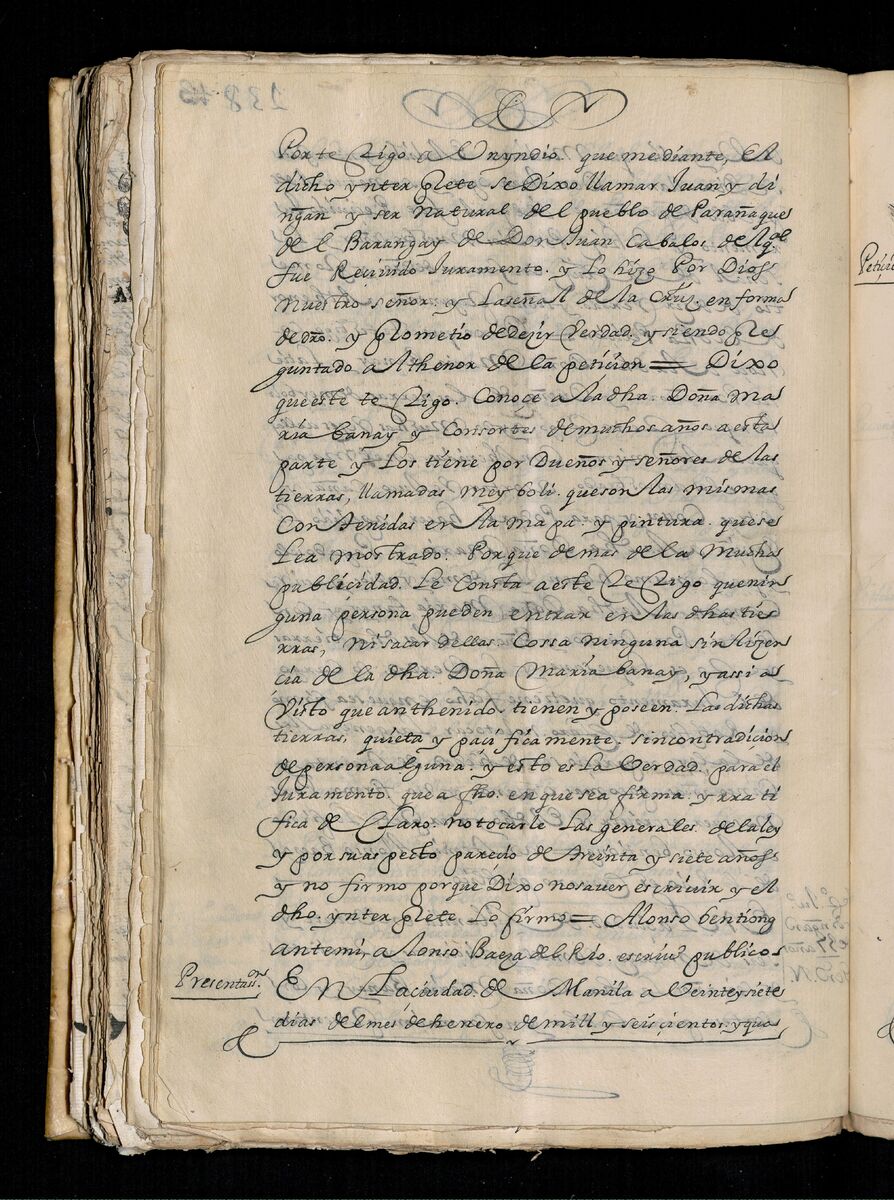 Por te stigo a Un yndio que mediante, el
dicho ynterprete se Dixo llamar Juan y di
ngan y ser natural del pueblo de Parañaque
de el Barangay de Don Juan Cabalos de Aql
fue Recivido Juramento. y Lo hizo Por Dios
nuestro señor: y Laseñal de la Cruz en forma
de dro. y Prometio de dezir Verdad. y siendo pre
guntado a el thenor de la peticion = Dixo
que este testigo. Conoce a la dha. Doña Ma
ria banay y Consortes de muchos años a esta
parte y Los tiene por Dueños y señores de las
tierras, llamadas meyboli. que son las mismas
Contenidas en la mapa. y pintura. que se
Lea mostrado. Porque demas de la mucha
publicidad. Le Consta a este testigo que nin
guna persona pueden entrar en las dhas tie
rras, ni sacar dellas Cossa ninguna sin lizen
cia de la dha. Doña Maria banay, y assi a
Visto que an thenido. tienen y poseen. Las dichas
tierras, quieta y pacificamente. sin contradicion
de persona alguna. y esto es La Verdad. para el
Juramento. que a fho. en que se a firma. y rrati
fica de Claro. no tocarle Las generales. de la ley
y por su aspecto parecio de treinta y siete años
y no firmo porque Dixo no saver escrivir y el
dho. ynterprete Lo firmo = Alonso bentiong
ante mi, alonso Baeza del Rio. escrivo publicos
Presentasn.
EN La ciudad de Manila a Veinte y siete
dias del mes de henero de mill y seiscientos y qua